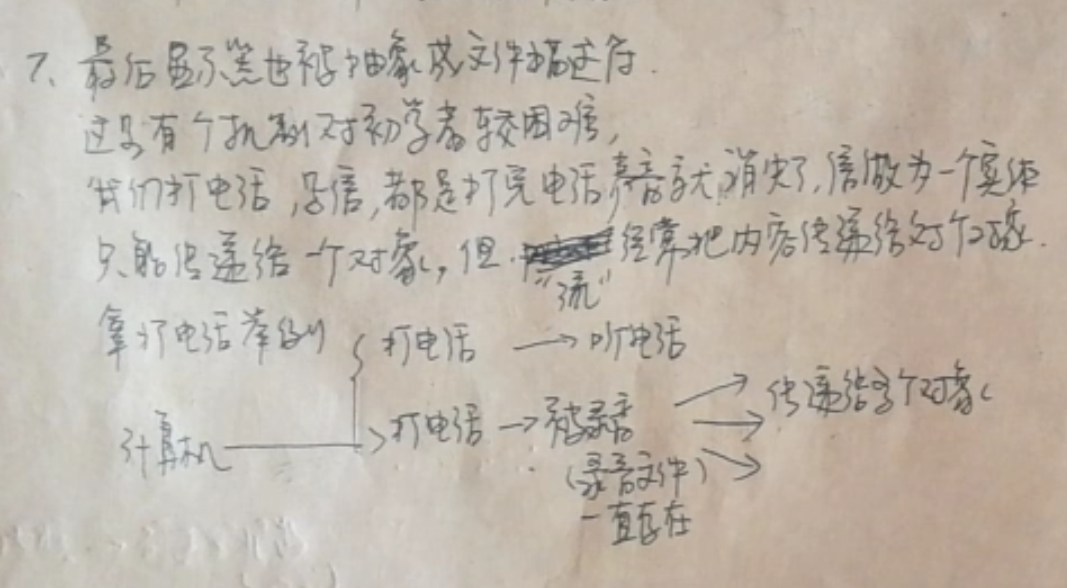 7、最后显示器也被抽象成文件描述符.
这里有个机制对初学者较困难,
我们打电话,写信,都是打完电话声音就消失了,信做为一个实体
只能传递给一个对象,但 经常把内容传递给对个对象.
"流"
拿打电话举例 打电话 → 听电话
计算机 打电话 → 被录音 传递给多个对象
(录音文件)
一直存在